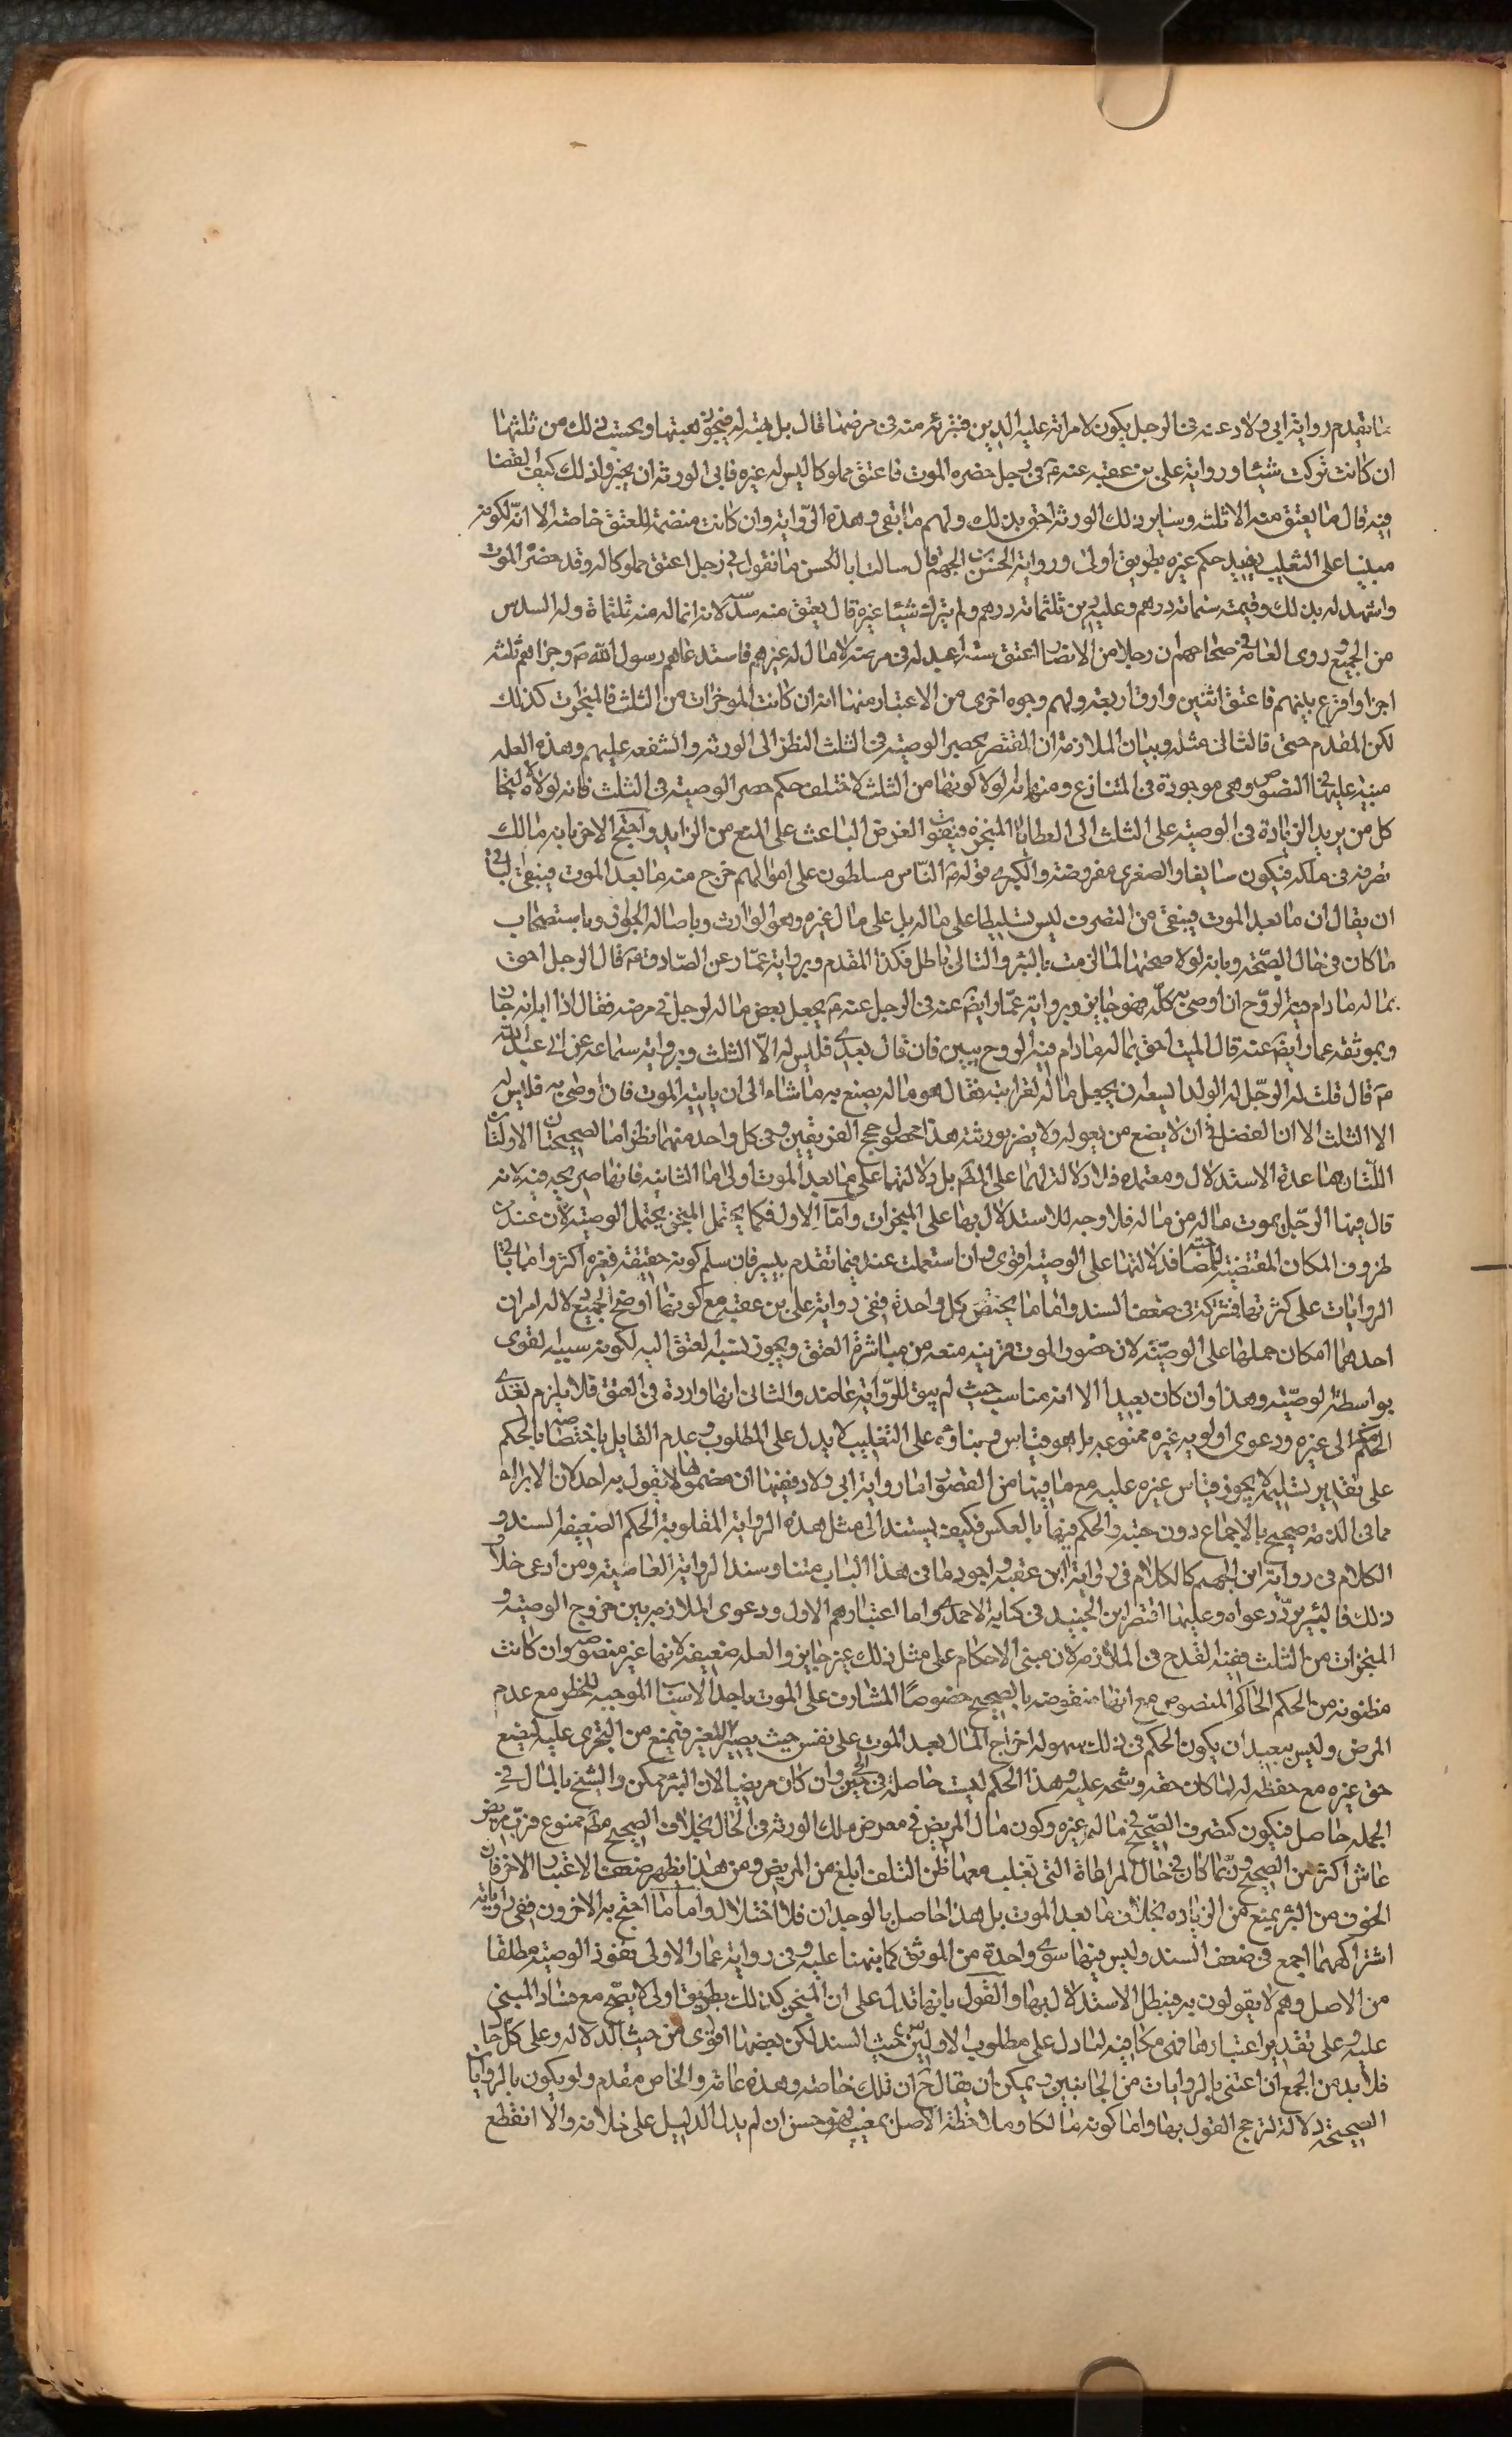 ما تقدم رواية ابى ولاد عنه فى الرجل يكون لامراته عليه الدين فتبرئه منه فى مرضها قال بل تهبه له فيجوز هبتها ويحسب ذلك من ثلثها
ان كانت تركت شيئا ورواية على بن عقبه عنه ع فى رجل حضره الموت فاعتق مملوكا ليس له غيره فابى الورثه ان يجيزوا ذلك كيف القضا
فيه قال ما يعتق منه الا ثلثه وساير ذلك الورثه احق بذلك ولهم ما بقى وهذه الرواية وان كانت متضمنة للعتق خاصه الا انه لكونه
مبنيا على التغليب يفيد حكم غيره بطريق اولى ورواية الحسن بن الجهم قال سالت ابا الحسن ما تقول فى رجل اعتق مملوكا له وقد حضره الموت
واشهد له بذلك وقيمته ستمائة درهم وعليه دين ثلثمائة درهم ولم يترك شيئا غيره قال يعتق منه سدسه لانه انما له منه ثلثمائة وله السدس
من الجميع وروى العامة فى صحاحهم ان رجلا من الانصار اعتق ستة اعبد له فى مرضه لا مال له غيرهم فاستدعاهم رسول الله ص وجزاهم ثلثه
اجزا واقرع بينهم فاعتق اثنين وارق اربعه ولهم وجوه اخرى من الاعتبار منها انه ان كانت المؤخرات من الثلث فالمنجزات كذلك
لكن المقدم حق فالتالى مثله وبيان الملازمة ان المقتضى لحصر الوصيه فى الثلث النظر الى الورثه والشفعه عليهم وهذه العله
منبه عليها فى النصوص وهى موجودة فى المتنازع ومنها انه لولا كونها من الثلث لاختلف حكم حصر الوصيه فى الثلث فانه لولاه لالتجا
كل من يريد الزيادة فى الوصيه على الثلث الى العطايا المنجزه فيفوت الغرض الباعث على المنع من الزايد واحتج الاخر بانه مالك
تصرف فى ملكه فيكون سائغا والصغرى مفروضه والكبرى قوله ع الناس مسلطون على اموالهم خرج منه ما بعد الموت فيبقى الباقى
ان يقال ان ما بعد الموت فيبقى من التصرف ليس تسليطا على ماله بل على مال غيره وهو الوارث وباصاله الجواز وباستصحاب
ما كان فى حال الصحة وبانه لولا صحتها لما لزمت بالبرء والتالى باطل فكذا المقدم وبرواية عمار عن الصادق ع قال الرجل احق
بماله ما دام فيه الروح ان اوصى به كله فهو جايز وبرواية عمار ايضا عنه فى الرجل عنه ع يجعل بعض ماله لرجل فى مرضه فقال اذا ابانه جاز
وبموثقه عمار ايضا عنه قال الميت احق بماله ما دام فيه الروح يبين فان قال بعدى فليس له الا الثلث وبرواية سماعه عن ابى عبد الله
ع قال قلت له الرجل له الولد ايسعه ان يجعل ماله لقرابته فقال هو ماله يصنع به ما شاء الى ان ياتيه الموت فان اوصى به فليس له
الا الثلث الا ان الفضل فى ان لا يضيع من يعوله ولا يضر بورثته هذا محصول حجج الفريقين وفى كل واحد منهما نظر اما الصحيحتان الاولتان
اللتان هما عدة الاستدلال ومعتمده فلا دلالة لهما على المط بل دلالتهما على ما بعد الموت اولى اما الثانيه فانها صريحه فيه لانه
قال فيها الرجل يموت ماله من ماله فلا وجه للاستدلال بها على المنجزات واما الاول فكما يحتمل المنجز يحتمل الوصيه لان عند من
ظروف المكان المقتضيه للمصاحبه فدلالتها على الوصيه اقوى وان استعملت عند فيما تقدم بيسير فان سلم كونه حقيقه فغيره اكثر واما باقى
الروايات على كثرتها فمشتركة فى ضعف السند واما ما يختص كل واحدة ففى رواية على بن عقبه مع كونها اوضح الجميع دلاله امران
احدهما امكان حملها على الوصيه لان حضور الموت قرينه منعه من مباشرة العتق ويجوز نسبه العتق اليه لكونه سببه القوى
بواسطة الوصيه وهذا وان كان بعيدا الا انه مناسب حيث لم يبق للرواية عاضد والثانى انها واردة فى العتق فلا يلزم تعدى
الحكم الى غيره ودعوى اولويه غيره ممنوعه بل هو قياس وبناؤه على التغليب لا يدل على المطلوب وعدم القايل باختصاصه بالحكم
على تقدير تسليمه لا يجوز قياس غيره عليه مع ما فيها من القصور اما رواية ابى ولاد ففيها ان مضمونها لا يقول به احد لان الابراء
مما فى الذمة صحيح بالاجماع دون هبته والحكم فيها بالعكس فكيف يستند الى مثل هذه الرواية المقلوبة الحكم الضعيفه السند و
الكلام فى رواية ابن الجهم كالكلام فى رواية ابن عقبه واجود ما فى هذا الباب متنا وسندا الرواية العاميه ومن ادعى خلاف
ذلك فالسبر يرد دعواه وعليها اقتصر ابن الجنيد فى كتابه الاحمدى واما اعتبارهم الاول ودعوى الملازمه بين خروج الوصيه و
المنجزات من الثلث ففيه القدح فى الملازمه لان مبنى الاحكام على مثل ذلك غير جايز والعله ضعيفه لانها غير منصوصه وان كانت
مظنونه من الحكم المنصوص مع انها منقوضه بالصحيح خصوصا المشارف على الموت باحد الاسباب الموجبه للخطر مع عدم
المرض وليس ببعيد ان يكون الحكم فى ذلك سهوله اخراج المال بعد الموت على نفس حيث يصير للغير فتمنع من التجرى عليه ليضيع
حق غيره مع حفظه له لما كان حقه وشحه عليه وهذا الحكم ليست حاصلة فى الحى وان كان مريضا لان البرء ممكن والشح بالمال فى
الجمله حاصل فيكون كتصرف الصحيح فى مال غيره وكون مال المريض فى معرض ملك الورثه فى الحال بخلاف الصحيح مط ممنوع فرب مريض
عاش اكثر من الصحيح وربما كان فى حال المراماة التى تغلب معها ظن التلف ابلغ من المريض ومن هنا يظهر ضعف الاعتبار الاخر فان
الخوف من البرء يمنع من الزياده بخلاف ما بعد الموت بل هذا حاصل بالوجدان فلا اختلال واما ما احتج به الاخرون ففى رواياته
اشتراكهما اجمع فى ضعف السند وليس فيها سوى واحدة من الموثق كما نبهنا عليه وفى رواية عمار الاولى نفوذ الوصيه مطلقا
من الاصل وهم لا يقولون به فيبطل الاستدلال بها والقول بانها تدل على ان المنجز كذلك بطريق اولى لا يصح مع فساد المبنى
عليه وعلى تقدير اعتبارها فهى مكافئه لما دل على مطلوب الاولين من حيث السند لكن بعضها اقوى من حيث الدلاله وعلى كل حال
فلا بد من الجمع ان اعتنى بالروايات من الجانبين ويمكن ان يقال ح ان تلك خاصه وهذه عامه والخاص مقدم ولو يكون بالروايات
الصحيحه دلالة لترجح القول بها واما كونه مالكا وملاحظة الاصل بمعنييه فهو حسن ان لم يدل الدليل على خلافه والا انقطع